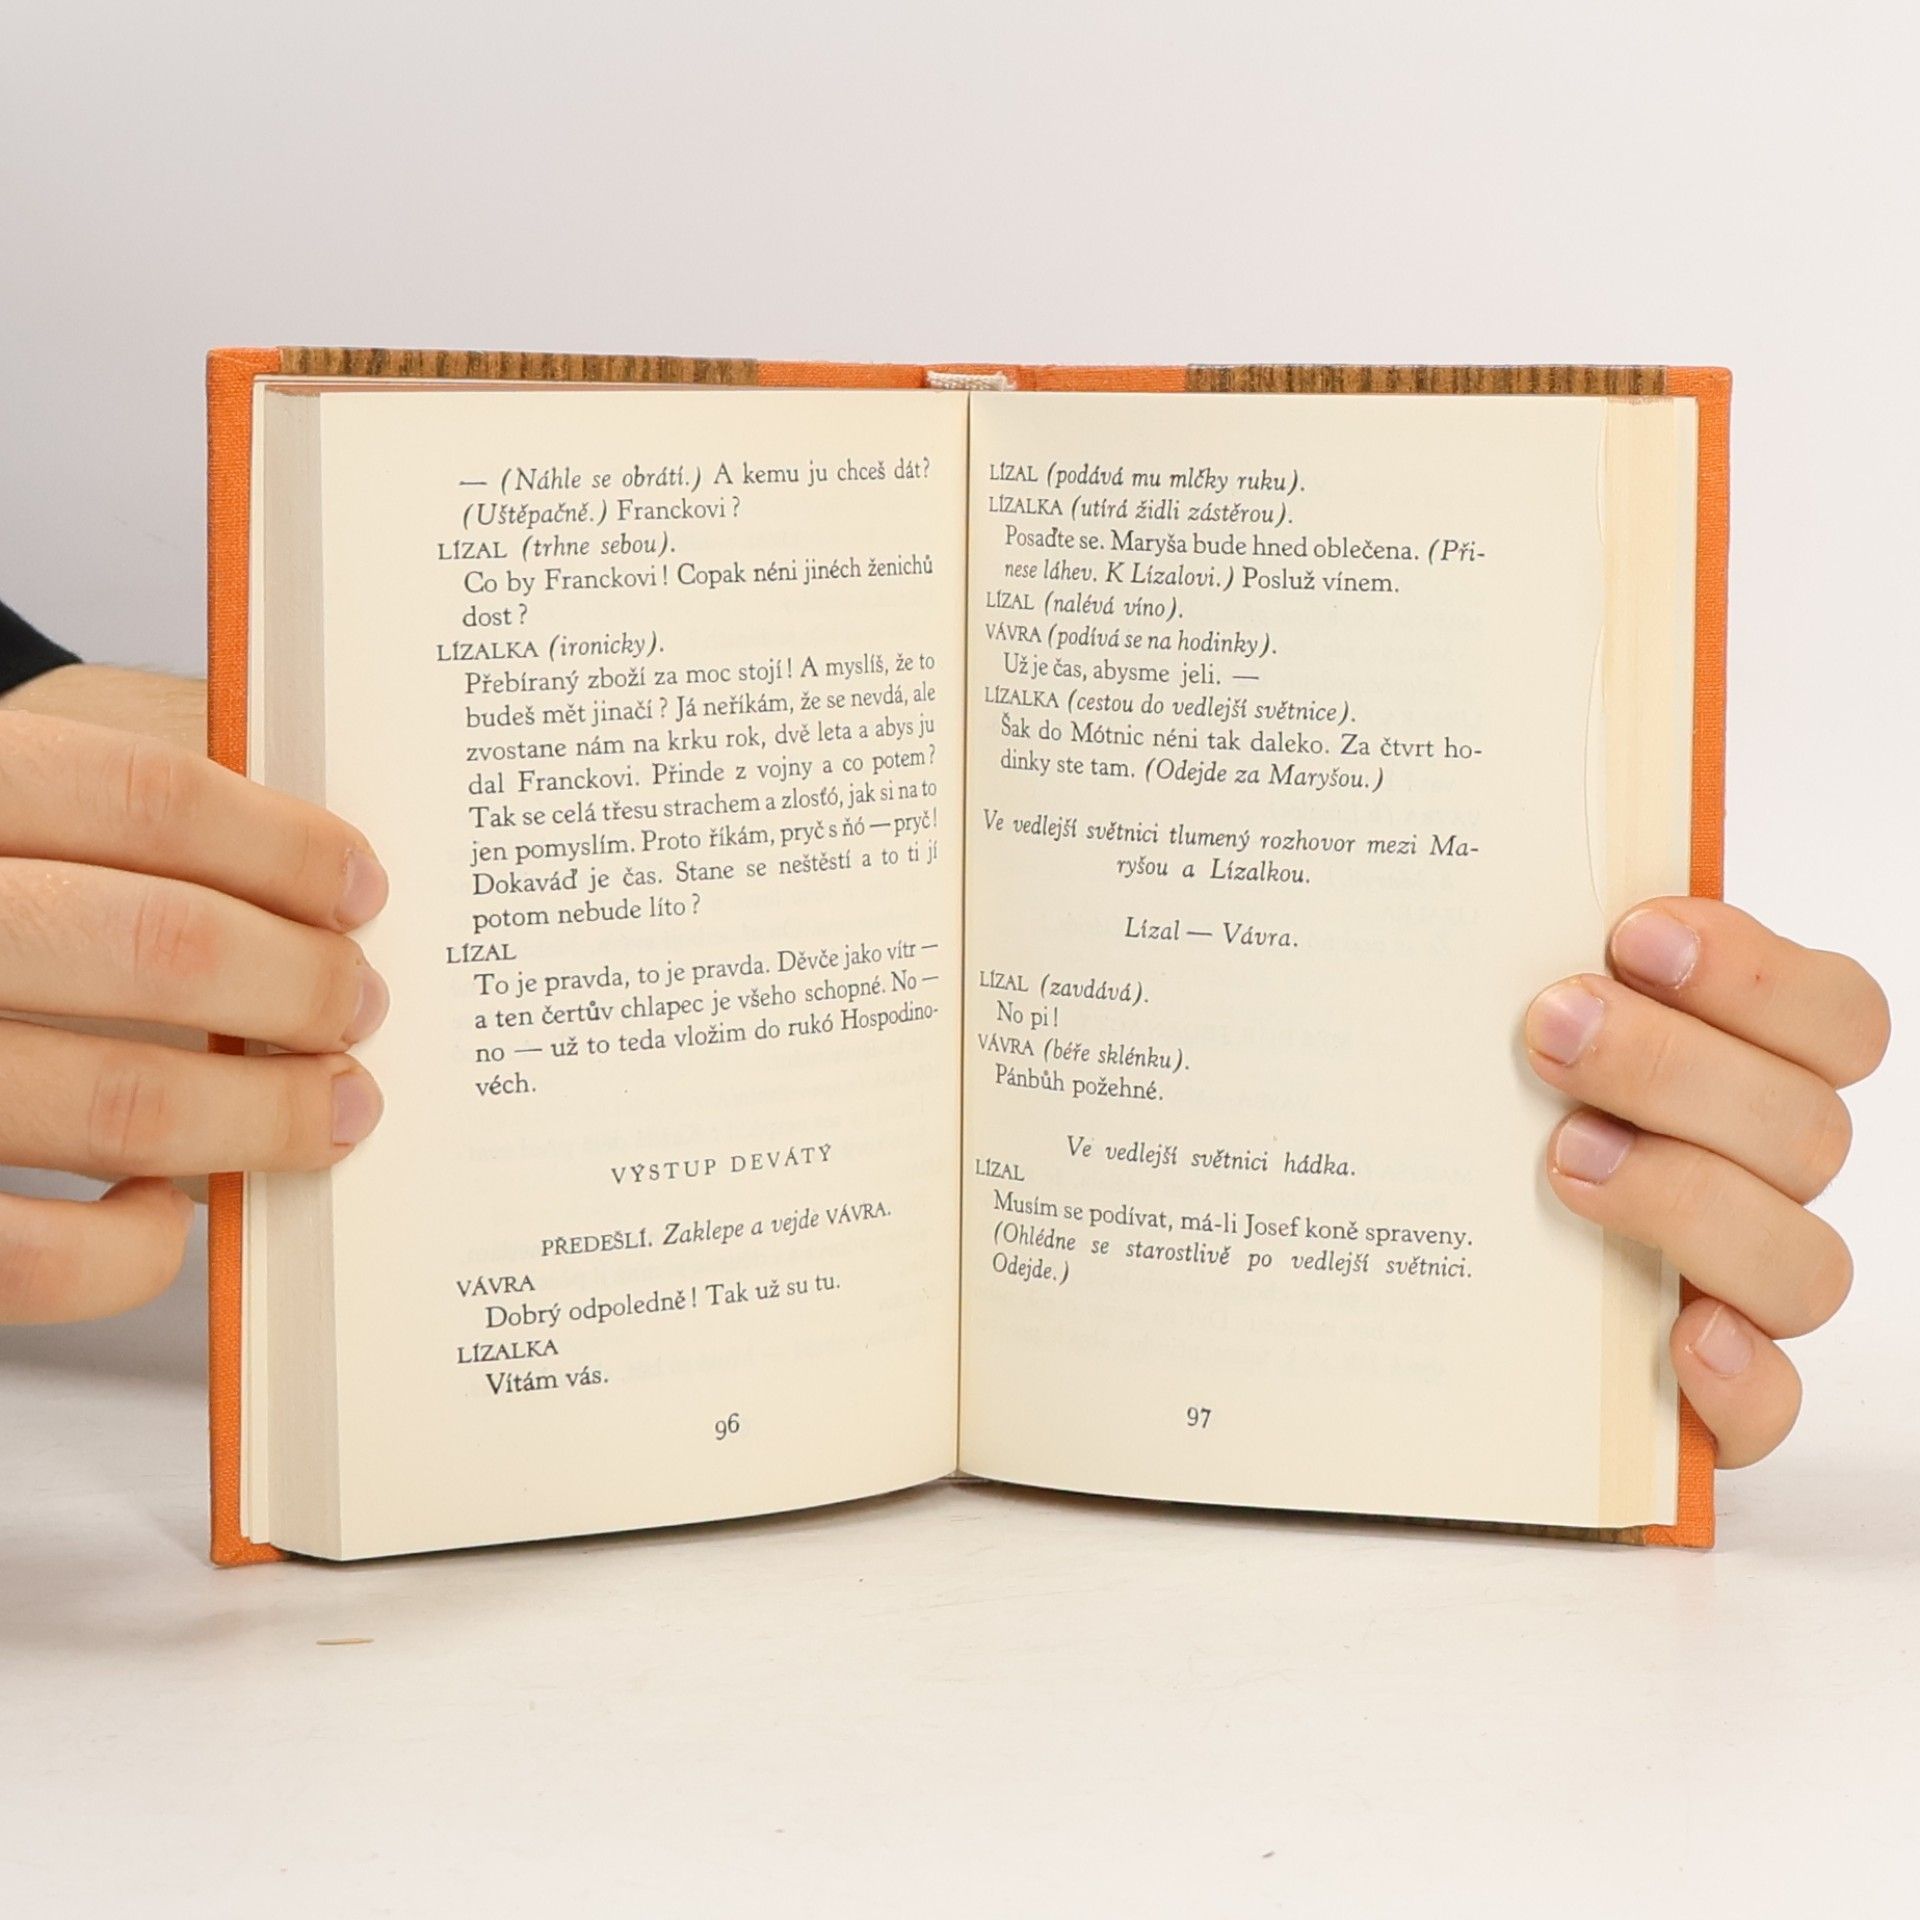 — (Náhle se obrátí.) A kemu ju chceš dát?
(Uštěpačně.) Franckovi?
LÍZAL (trhne sebou).
Co by Franckovi! Copak néni jinéch ženichů
dost?
LÍZALKA (ironicky).
Přebíraný zboží za moc stojí! A myslíš, že to
budeš mět jinačí? Já neříkám, že se nevdá, ale
zvostane nám na krku rok, dvě leta a abys ju
dal Franckovi. Přinde z vojny a co potem?
Tak se celá třesu strachem a zlosťó, jak si na to
jen pomyslím. Proto říkám, pryč s ňó — pryč!
Dokaváď je čas. Stane se neštěstí a to ti jí
potom nebude líto?
LÍZAL
To je pravda, to je pravda. Děvče jako vítr —
a ten čertův chlapec je všeho schopné. No —
no — už to teda vložim do rukó Hospodino-
véch.
VÝSTUP DEVÁTÝ
PŘEDEŠLÍ. Zaklepe a vejde VÁVRA.
VÁVRA
Dobrý odpoledně! Tak už su tu.
LÍZALKA
Vítám vás.
96
LÍZAL (podává mu mlčky ruku).
LÍZALKA (utírá židli zástěrou).
Posaďte se. Maryša bude hned oblečena. (Při-
nese láhev. K Lízalovi.) Posluž vínem.
LÍZAL (nalévá víno).
VÁVRA (podívá se na hodinky).
Už je čas, abysme jeli. —
LÍZALKA (cestou do vedlejší světnice).
Šak do Mótnic néni tak daleko. Za čtvrt ho-
dinky ste tam. (Odejde za Maryšou.)
Ve vedlejší světnici tlumený rozhovor mezi Ma-
ryšou a Lízalkou.
Lízal — Vávra.
LÍZAL (zavdává).
No pi!
VÁVRA (béře sklénku).
Pánbůh požehné.
Ve vedlejší světnici hádka.
LÍZAL
Musím se podívat, má-li Josef koně spraveny.
(Ohlédne se starostlivě po vedlejší světnici.
Odejde.)
97